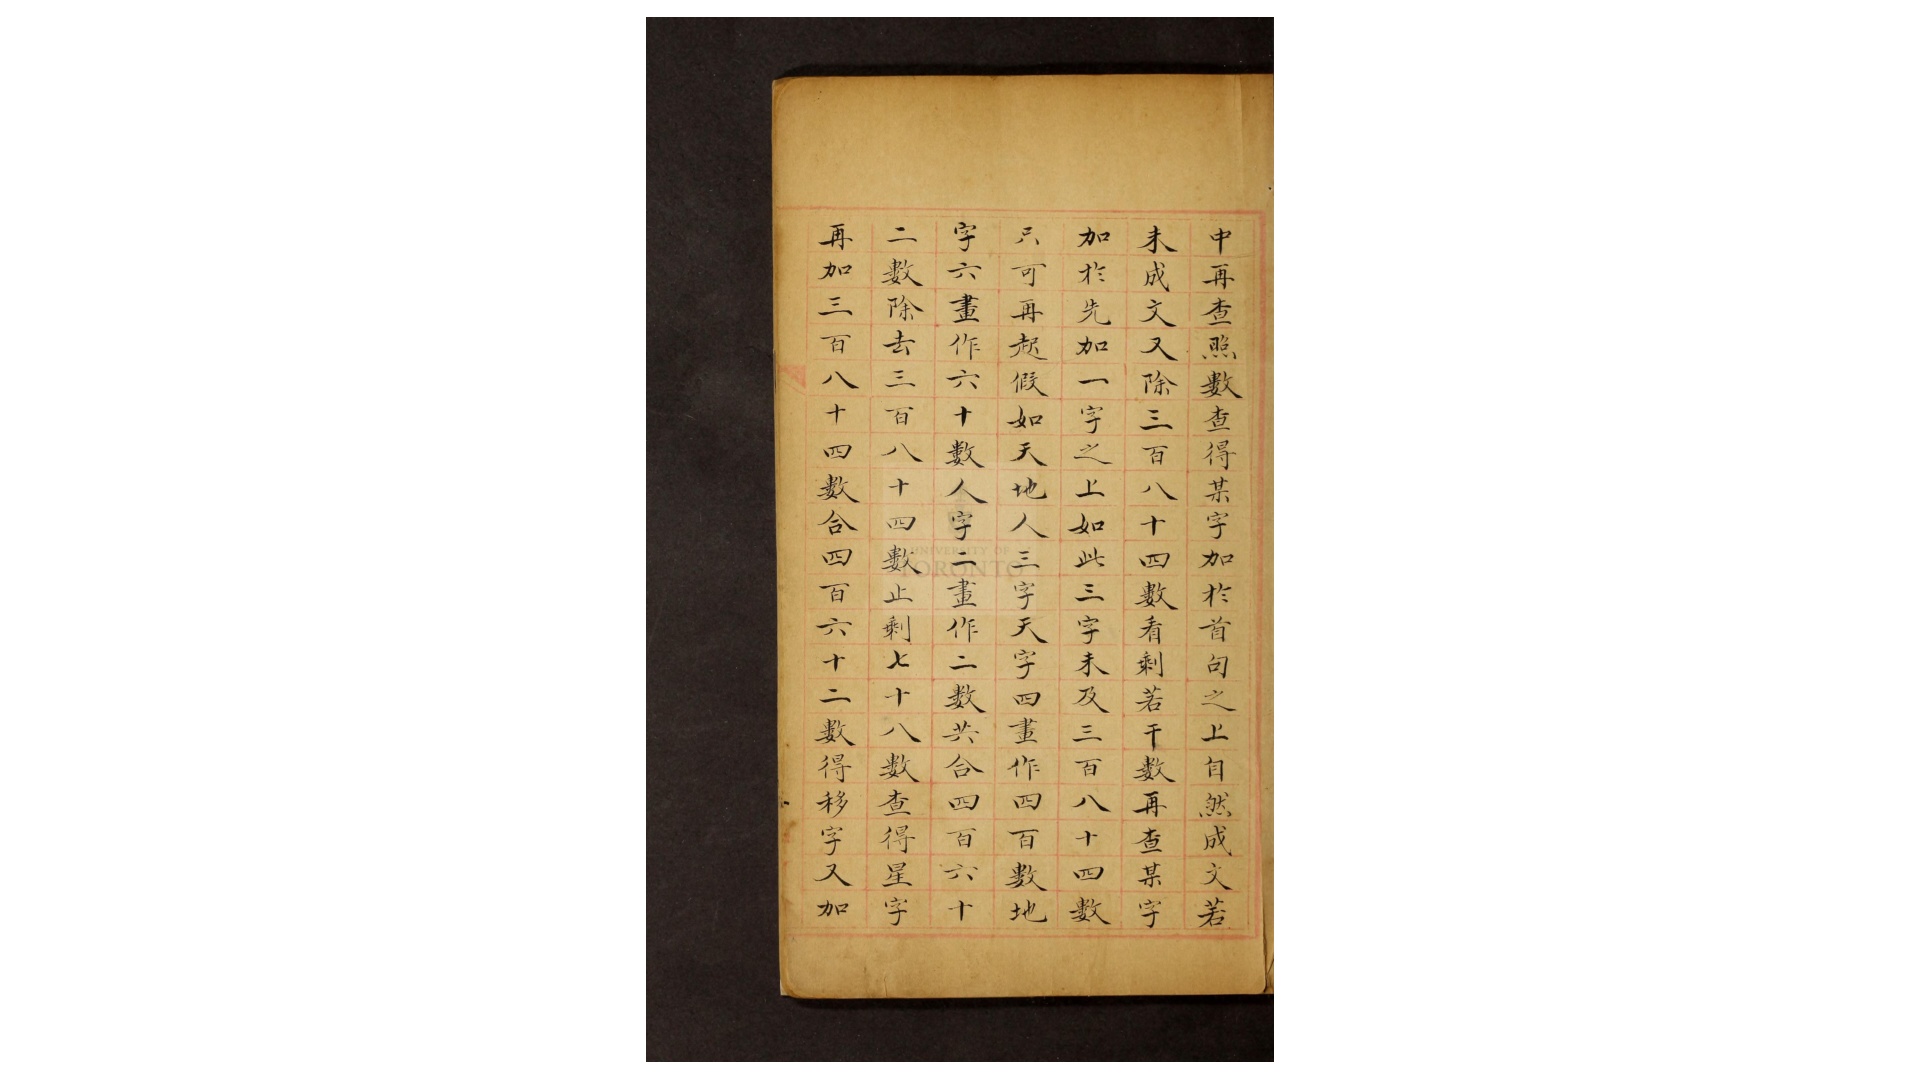 中再查照數查得某字加於首句之上自然成文若
未成文又除三百八十四數看剩若干數再查某字
加於先加一字之上如此三字未及三百八十四數
只可再起假如天地人三字天字四畫作四百數地
字六畫作六十數人字二畫作二數共合四百六十
二數除去三百八十四數止剩七十八數查得星字
再加三百八十四數合四百六十二數得移字又加
UNIVERSITY OF
TORONTO